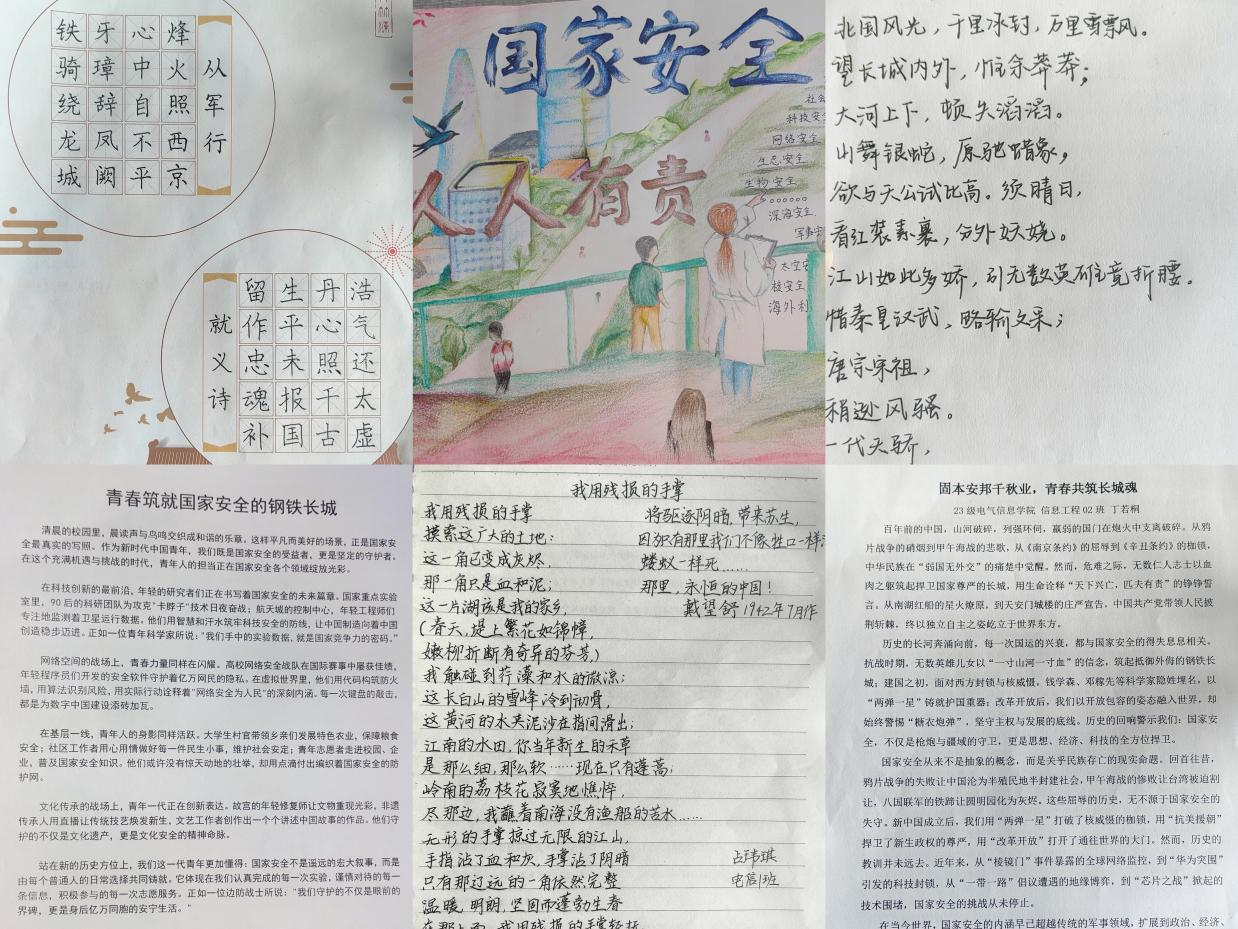 从军行
烽火照西京
心中自不平
牙璋辞凤阙
铁骑绕龙城
就义诗
浩气还太虚
丹心照千古
生平未报国
留作忠魂补
国家安全
人人有责
社会
科技安
网络安全
生态安全
生物安全
深海安全
军事安
太空安
核安全
海外利
北国风光，千里冰封，万里雪飘。
望长城内外，惟余莽莽；
大河上下，顿失滔滔。
山舞银蛇，原驰蜡象，
欲与天公试比高。须晴日，
看红装素裹，分外妖娆。
江山如此多娇，引无数英雄竞折腰。
惜秦皇汉武，略输文采；
唐宗宋祖，
稍逊风骚。
一代天骄，
青春筑就国家安全的钢铁长城
清晨的校园里，晨读声与鸟鸣交织成和谐的乐章。这样平凡而美好的场景，正是国家安
全最真实的写照。作为新时代中国青年，我们既是国家安全的受益者，更是坚定的守护者。
在这个充满机遇与挑战的时代，青年人的担当正在国家安全各个领域绽放光彩。
在科技创新的最前沿，年轻的研究者们正在书写着国家安全的未来篇章。国家重点实验
室里，90 后的科研团队为攻克"卡脖子"技术日夜奋战；航天城的控制中心，年轻工程师们
专注地监测着卫星运行数据。他们用智慧和汗水筑牢科技安全的防线，让中国制造向着中国
创造稳步迈进。正如一位青年科学家所说："我们手中的实验数据，就是国家竞争力的密码。"
网络空间的战场上，青春力量同样在闪耀。高校网络安全战队在国际赛事中屡获佳绩，
年轻程序员们开发的安全软件守护着亿万网民的隐私。在虚拟世界里，他们用代码构筑防火
墙，用算法识别风险，用实际行动诠释着"网络安全为人民"的深刻内涵。每一次键盘的敲击，
都是为数字中国建设添砖加瓦。
在基层一线，青年人的身影同样活跃。大学生村官带领乡亲们发展特色农业，保障粮食
安全；社区工作者用心用情做好每一件民生小事，维护社会安定；青年志愿者走进校园、企
业，普及国家安全知识。他们或许没有惊天动地的壮举，却用点滴付出编织着国家安全的防
护网。
文化传承的战场上，青年一代正在创新表达。故宫的年轻修复师让文物重现光彩，非遗
传承人用直播让传统技艺焕发新生，文艺工作者创作出一个个讲述中国故事的作品。他们守
护的不仅是文化遗产，更是文化安全的精神命脉。
站在新的历史方位上，我们这一代青年更加懂得：国家安全不是遥远的宏大叙事，而是
由每个普通人的日常选择共同铸就。它体现在我们认真完成的每一次实验，谨慎对待的每一
条信息，积极参与的每一次志愿服务。正如一位边防战士所说："我们守护的不仅是眼前的
界碑，更是身后亿万同胞的安宁生活。"
我用残损的手掌
我用残损的手掌
摸索这广大的土地：
这一角已变成灰烬，
那一角只是血和泥；
这一片湖该是我的家乡，
（春天，堤上繁花如锦幛，
嫩柳折断有奇异的芬芳）
我触碰到荇藻和水的微凉；
这长白山的雪峰冷到彻骨，
这黄河的水夹泥沙在指间滑出；
江南的水田，你当年新生的禾草
是那么细，那么软……现在只有蓬蒿；
岭南的荔枝花寂寞地憔悴，
尽那边，我蘸着南海没有渔船的苦水……
无形的手掌掠过无限的江山，
手指沾了血和灰，手掌沾了阴暗
只有那辽远的一角依然完整
温暖，明朗，坚固而蓬勃生春
在那上面，我用残损的手掌轻抚
将驱逐阴暗，带来苏生，
因为只有那里我们不像牲口一样活
蝼蚁一样死……
那里，永恒的中国！
戴望舒 1942年7月作
占玮琪
电信1班
固本安邦千秋业，青春共筑长城魂
23 级电气信息学院 信息工程 02 班 丁若桐
百年前的中国，山河破碎，列强环伺，羸弱的国门在炮火中支离破碎。从鸦
片战争的硝烟到甲午海战的悲歌，从《南京条约》的屈辱到《辛丑条约》的枷锁，
中华民族在“弱国无外交”的痛楚中觉醒。然而，危难之际，无数仁人志士以血
肉之躯筑起捍卫国家尊严的长城，用生命诠释“天下兴亡，匹夫有责”的铮铮誓
言。从南湖红船的星火燎原，到天安门城楼的庄严宣告，中国共产党带领人民披
荆斩棘，终以独立自主之姿屹立于世界东方。
历史的长河奔涌向前，每一次国运的兴衰，都与国家安全的得失息息相关。
抗战时期，无数英雄儿女以“一寸山河一寸血”的信念，筑起抵御外侮的钢铁长
城；建国之初，面对西方封锁与核威慑，钱学森、邓稼先等科学家隐姓埋名，以
“两弹一星”铸就护国重器；改革开放后，我们以开放包容的姿态融入世界，却
始终警惕“糖衣炮弹”，坚守主权与发展的底线。历史的回响警示我们：国家安
全，不仅是枪炮与疆域的守卫，更是思想、经济、科技的全方位捍卫。
国家安全从来不是抽象的概念，而是关乎民族存亡的现实命题。回首往昔，
鸦片战争的失败让中国沦为半殖民地半封建社会，甲午海战的惨败让台湾被迫割
让，八国联军的铁蹄让圆明园化为灰烬。这些屈辱的历史，无不源于国家安全的
失守。新中国成立后，我们用“两弹一星”打破了核威慑的枷锁，用“抗美援朝”
捍卫了新生政权的尊严，用“改革开放”打开了通往世界的大门。然而，历史的
教训并未远去。近年来，从“棱镜门”事件暴露的全球网络监控，到“华为突围”
引发的科技封锁，从“一带一路”倡议遭遇的地缘博弈，到“芯片之战”掀起的
技术围堵，国家安全的挑战从未停止。
在当今世界，国家安全的内涵早已超越传统的军事领域，扩展到政治、经济、